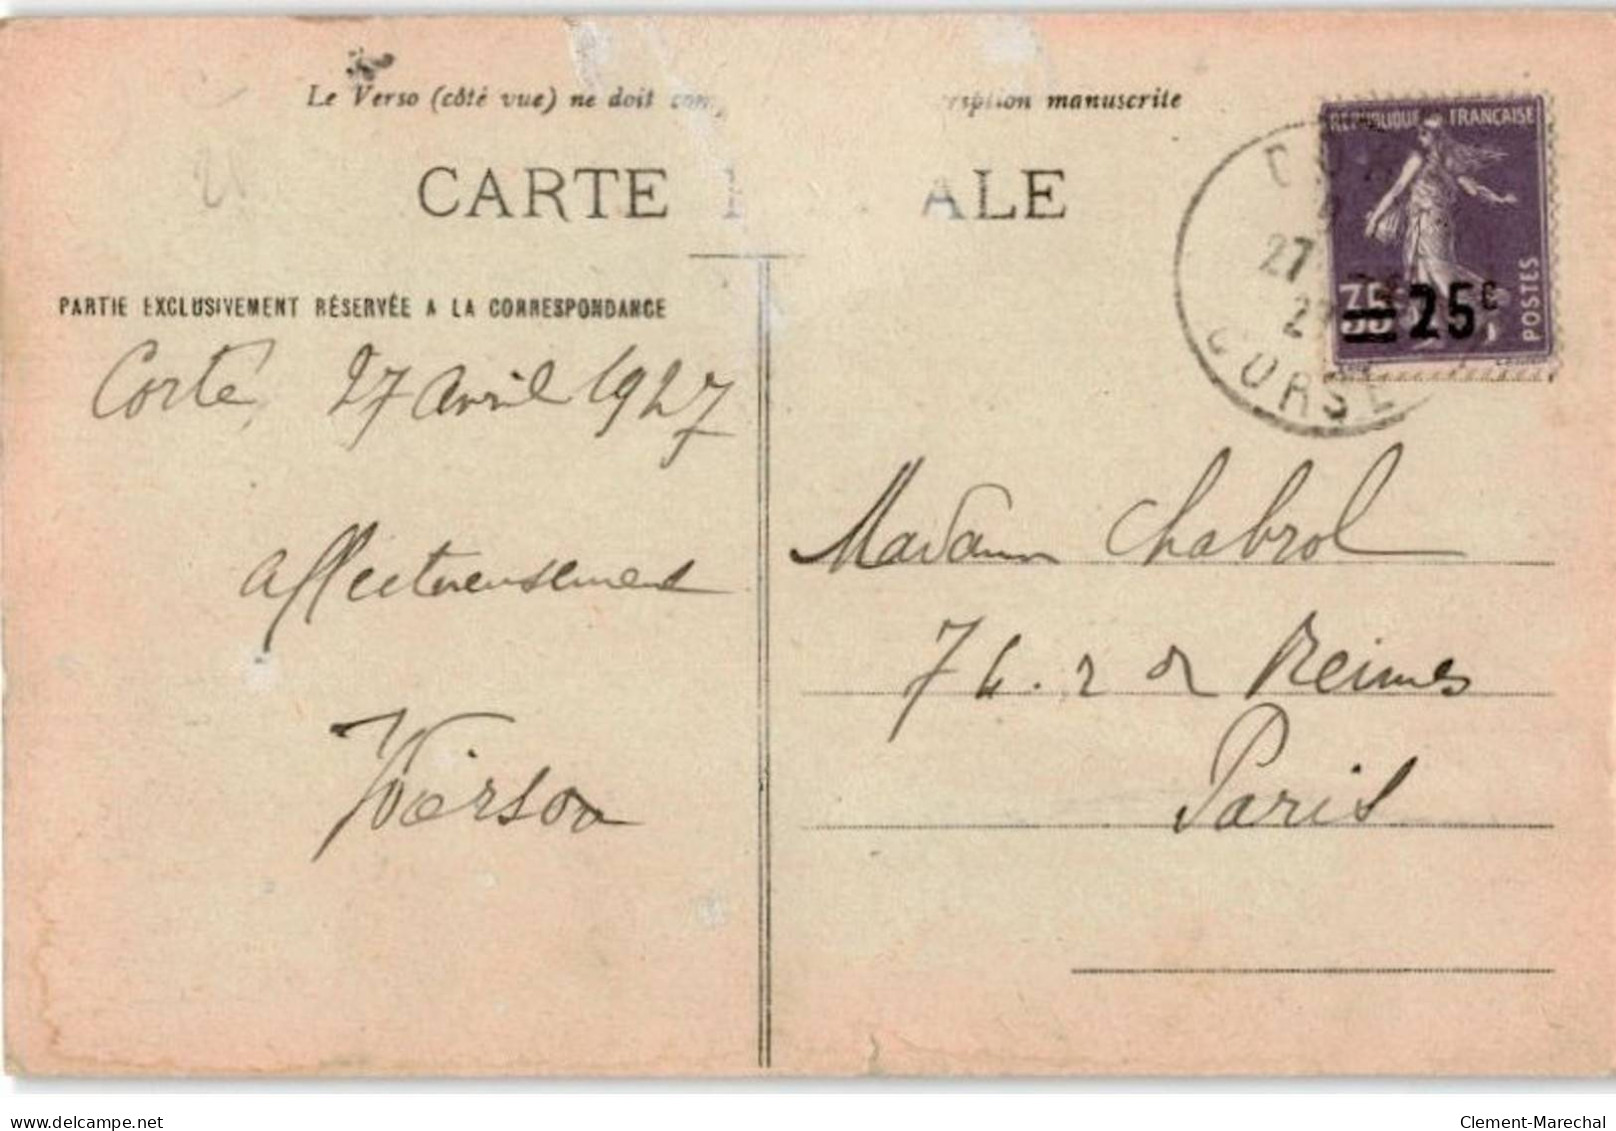 Le Verso (côté vue) ne doit com ription manuscrite
CARTE ALE
PARTIE EXCLUSIVEMENT RÉSERVÉE A LA CORRESPONDANCE
RÉPUBLIQUE FRANÇAISE
POSTES
35 25c
27
27
CORSE
Corte, 27 avril 1927
affectueusement
Madame Chabrol
74. r de Reims
Paris
delcampe.net
Clement-Marechal